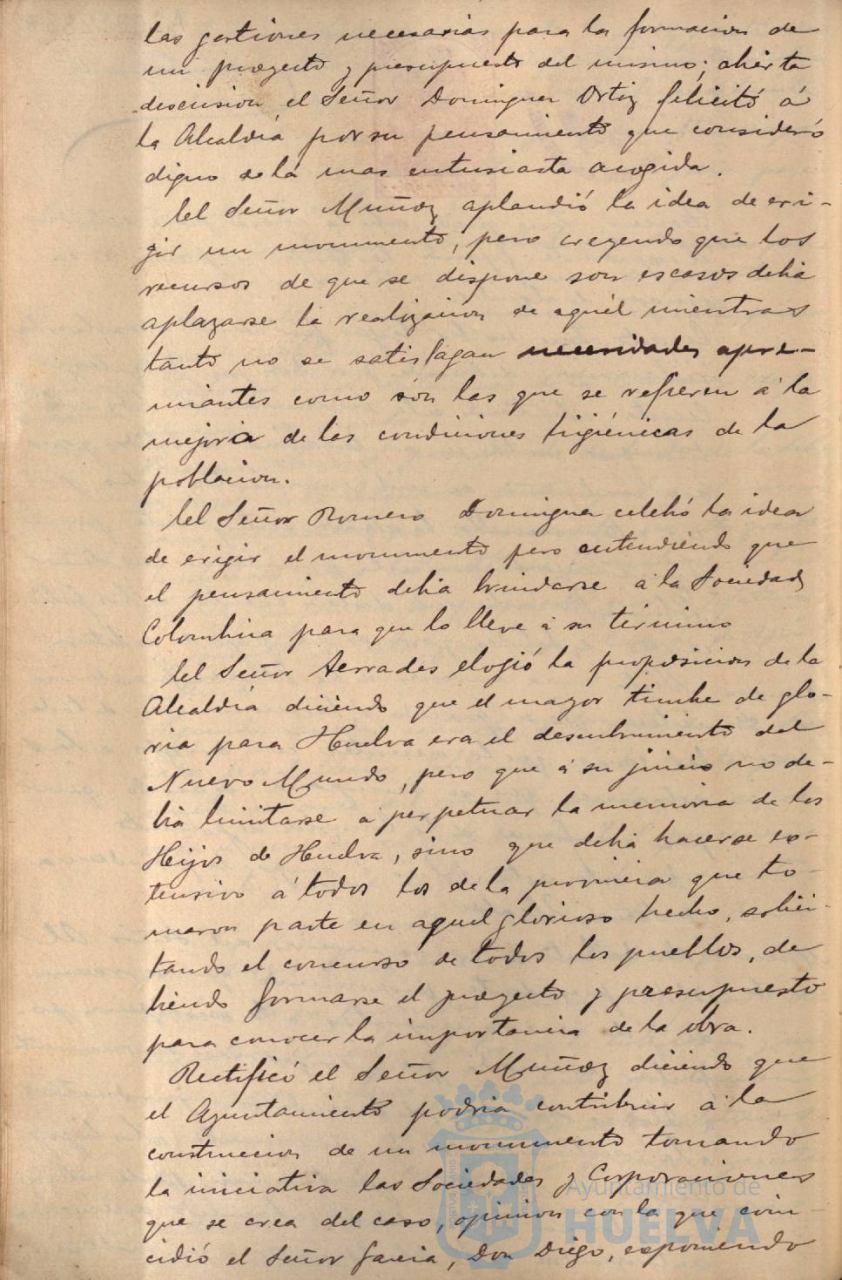 las gestiones necesarias para la formacion de
un proyecto y presupuesto del mismo; abierta
discusion el Señor Dominguez Ortiz felicitó á
la Alcaldía por su pensamiento que consideró
digno de la mas entusiasta acogida.
El Señor Muñoz aplaudió la idea de eri-
gir un monumento, pero creyendo que los
recursos de que se dispone son escasos debia
aplazarse la realizacion de aquél mientras
tanto no se satisfagan necesidades apre-
miantes como son las que se refieren á la
mejoria de las condiciones higiénicas de la
poblacion.
El Señor Romero Dominguez celebó la idea
de erigir el monumento pero entendiendo que
el pensamiento debia brindarse á la Sociedad
Colombina para que lo lleve á su término
El Señor Terrades elogió la proposicion de la
Alcaldía diciendo que el mayor timbre de glo-
ria para Huelva era el descubrimiento del
Nuevo Mundo, pero que á su juicio no de-
bia limitarse á perpetuar la memoria de los
Hijos de Huelva, sino que debia hacerse ex-
tensivo á todos los de la provincia que to-
maron parte en aquel glorioso hecho, solici-
tando el concurso de todos los pueblos, de
biendo formarse el proyecto y presupuesto
para conocer la importancia de la obra.
Rectificó el Señor Muñoz diciendo que
el Ayuntamiento podria contribuir á la
construccion de un monumento tomando
la iniciativa las Sociedades y Corporaciones
que se crea del caso, opinion con la que coin-
cidió el Señor Garcia, Don Diego, exponiendo
Ayuntamiento de
HUELVA